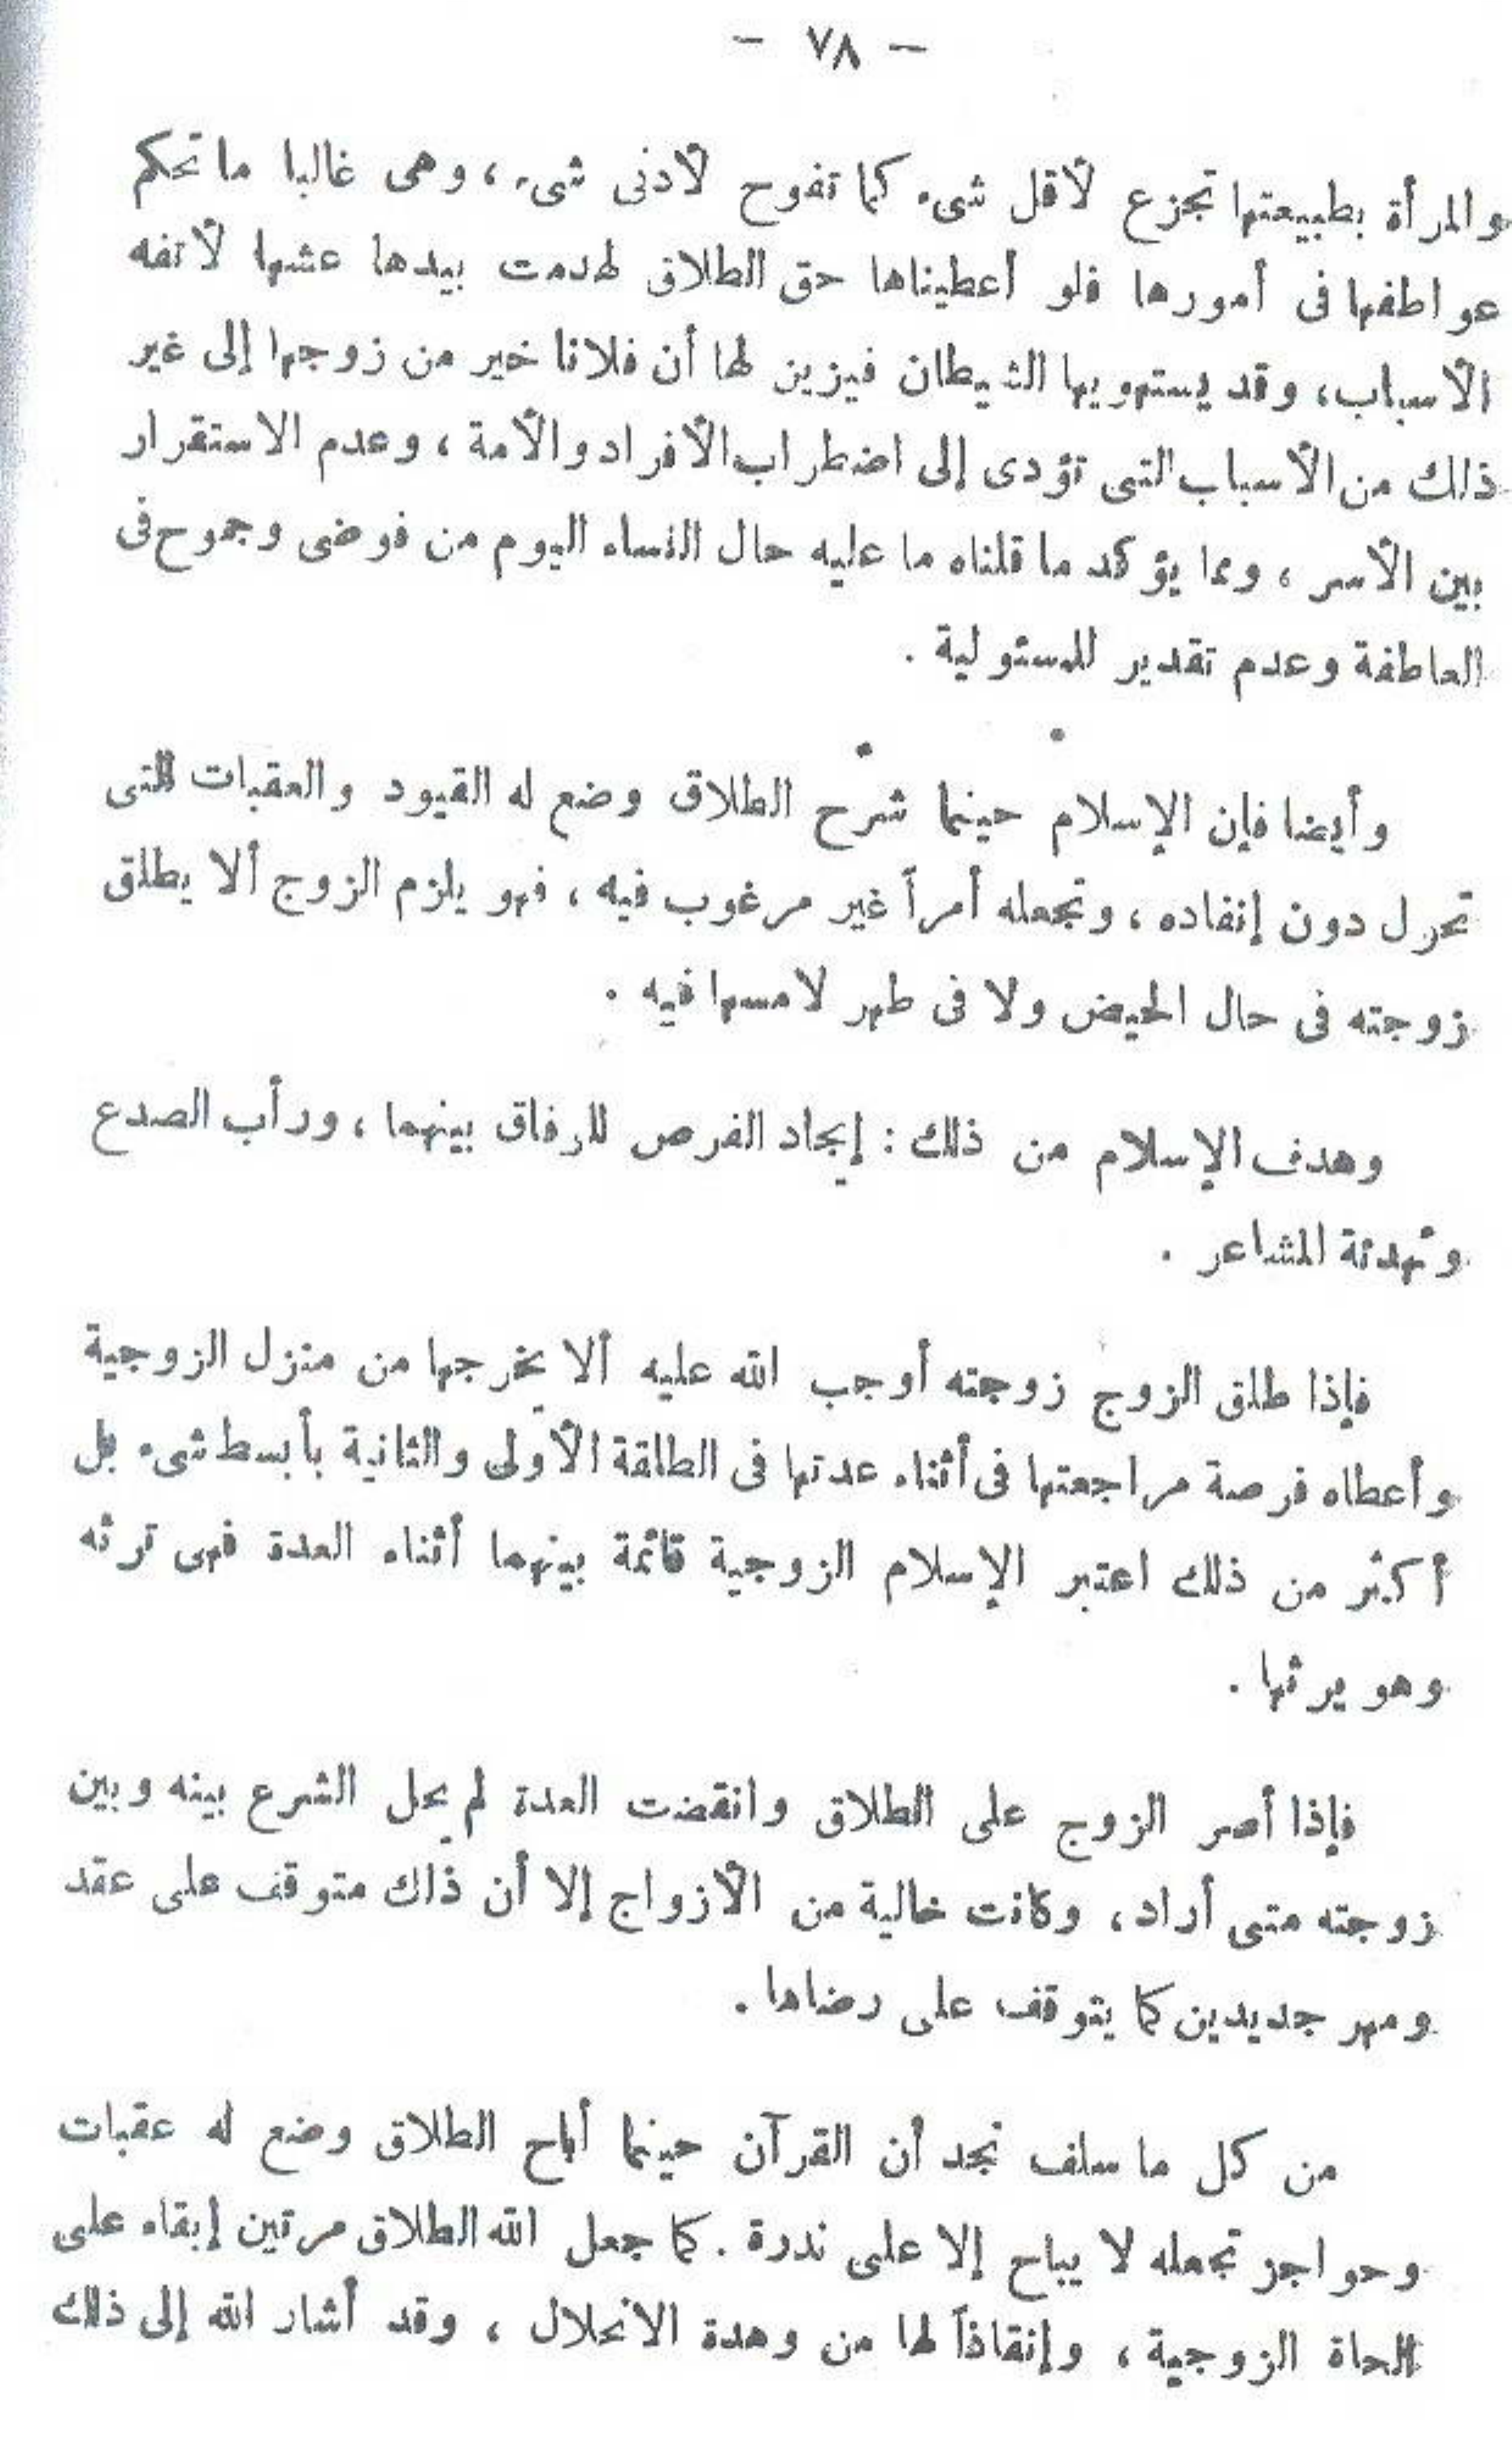 - ٧٨ -
والمرأة بطبيعتها تجزع لأقل شىء كما تفوح لأدنى شىء ، وهى غالبا ما تحكم
عواطفها فى أمورها فلو أعطيناها حق الطلاق لهدمت بيدها عشها لأتفه
الأسباب، وقد يستهويها الشيطان فيزين لها أن فلانا خير من زوجها إلى غير
ذلك من الأسباب التى تؤدى إلى اضطراب الأفراد والأمة ، وعدم الاستقرار
بين الأسر ، ومما يؤكد ما قلناه ما عليه حال النساء اليوم من فوضى وجموح فى
العاطفة وعدم تقدير للمسئولية .
وأيضا فإن الإسلام حينما شرح الطلاق وضع له القيود والعقبات التى
تحول دون إنفاده ، وتجعله أمراً غير مرغوب فيه ، فهو يلزم الزوج ألا يطلق
زوجته فى حال الحيض ولا فى طهر لامسها فيه .
وهدف الإسلام من ذلك : إيجاد الفرص للوفاق بينهما ، ورأب الصدع
وتهدئة المشاعر .
فإذا طلق الزوج زوجته أوجب الله عليه ألا يخرجها من منزل الزوجية
وأعطاه فرصة مراجعتها فى أثناء عدتها فى الطلقة الأولى والثانية بأبسط شىء بل
أكثر من ذلك اعتبر الإسلام الزوجية قائمة بينهما أثناء العدة فهى ترثه
وهو يرثها .
فإذا أصر الزوج على الطلاق وانقضت العدة لم يحل الشرع بينه وبين
زوجته متى أراد ، وكانت خالية من الأزواج إلا أن ذاك متوقف على عقد
ومهر جديدين كما يتوقف على رضاها .
من كل ما سلف نجد أن القرآن حينما أباح الطلاق وضع له عقبات
وحواجز تجعله لا يباح إلا على ندرة . كما جعل الله الطلاق مرتين إبقاء على
الحاة الزوجية ، وإنقاذاً لها من وهدة الانحلال ، وقد أشار الله إلى ذلك